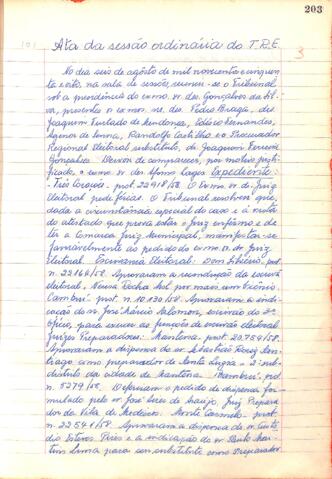 203
3
Ata da sessão ordinária do T.R.E.
No dia seis de agôsto de mil novecentos e cinquen-
ta e oito, na sala de sessões, reuniu-se o Tribunal
sob a presidência do exmo. sr. des. Gonçalves da Sil-
va, presentes os exmos. srs. des. Pedro Braga, drs.
Joaquim Furtado de Mendonça, Edésio Fernandes,
Agenor de Senna, Randolfo Castilho e o Procurador
Regional Eleitoral substituto, dr. Joaquim Ferreira
Gonçalves. Deixou de comparecer, por motivo justi-
ficado, o exmo. sr. des. Afonso Lages. Expediente:
- Três Corações - prot. 22918/58. O exmo. sr. dr. Juiz
Eleitoral pede férias. O Tribunal resolveu que,
dada a circunstância especial do caso e à vista
do atestado que prova estar o Juiz enfêrmo e de
ter a Comarca Juiz Municipal, manifestar-se
favoràvelmente ao pedido do exmo. sr. dr. Juiz
Eleitoral. Escrivania Eleitoral: Dom Silvério, prot.
n. 22166/58. Aprovaram a recondução da escrivã
eleitoral, Rocha Mol por mais um biênio.
Cambuí. prot. n. 10.130/58. Aprovaram a indi-
cação do sr. José Márcio Salomon, escrivão do 2º
ofício, para exercer as funções de escrivão eleitoral.
Juízes Preparadores: - Mantena. prot. 20.754/58.
Aprovaram a dispensa de sr. Sebastião
como preparador de Santa Luzia - 2º sub-
distrito da cidade de Mantena. prot.
n. 5279/58. Deferiram o pedido de dispensa for-
mulado pelo sr. José Peres de Araújo, Juiz Prepara-
dor de Vila de Medeiros. Monte Carmelo - prot.
n. 22541/58. Aprovaram a dispensa do sr.
Esteves Pires e a indicação do sr. Paulo
Lima para ser substituto como Preparador